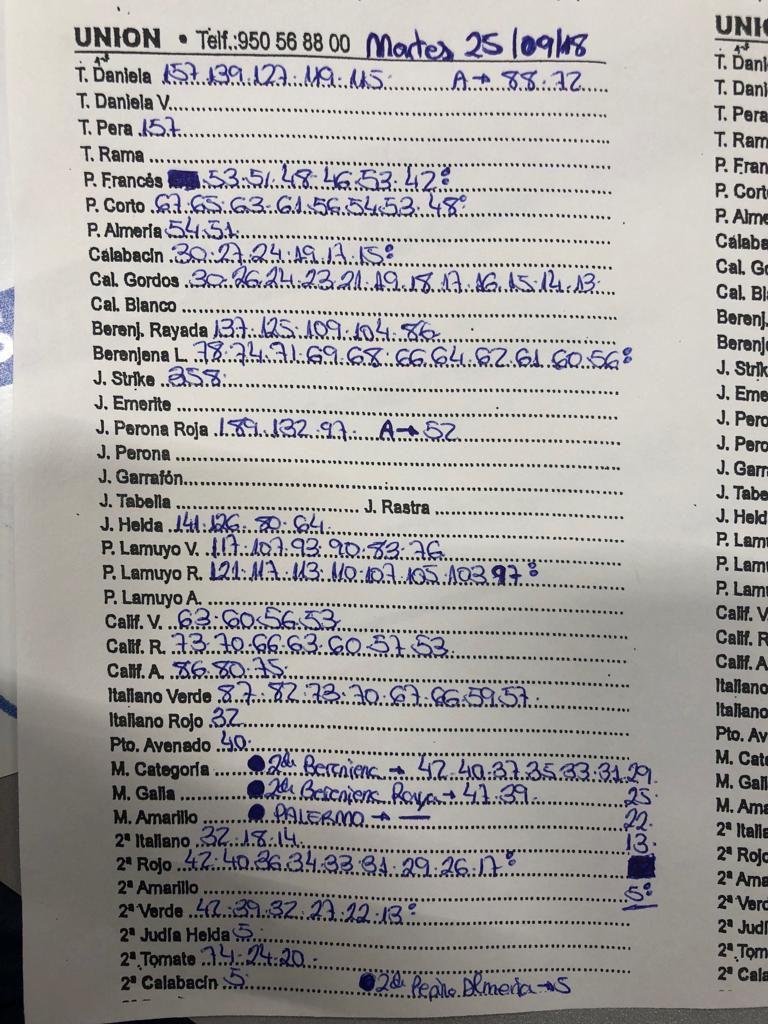 UNION • Telf.:950 56 88 00 Martes 25/09/18
1ª
T. Daniela 157.139.127.119.115. A→ 88.72
T. Daniela V.
T. Pera 157
T. Rama
P. Francés .53.51.48.46.53.42º
P. Corto 67.65.63.61.56.54.53.48º
P. Almería 54.51
Calabacín 30.27.24.19.17.15º
Cal. Gordos 30.26.24.23.21.19.18.17.16.15.14.13.
Cal. Blanco
Berenj. Rayada 137.125.109.104.86
Berenjena L. 78.74.71.69.68.66.64.62.61.60.56º
J. Strike 258.
J. Emerite
J. Perona Roja 189.132.97. A→ 52
J. Perona
J. Garrafón
J. Tabella J. Rastra
J. Helda 141.126.80.64.
P. Lamuyo V. 117.107.93.90.83.76
P. Lamuyo R. 121.117.113.110.107.105.103.97º
P. Lamuyo A.
Calif. V. 63.60.56.53
Calif. R. 73.70.66.63.60.57.53
Calif. A. 86.80.75.
Italiano Verde 87.82.73.70.67.66.59.57.
Italiano Rojo 32
Pto. Avenado 40.
M. Categoría 2da Berenjena → 42.40.37.35.33.31.29
M. Galia 2da Berenjena Raya → 47.39. 25
M. Amarillo PALERMO → — 22
2ª Italiano 32.18.14 13
2ª Rojo 42.40.36.34.33.31.29.26.17º
2ª Amarillo 5º
2ª Verde 42.39.32.27.22.13º
2ª Judía Helda 5
2ª Tomate 74.24.20.
2ª Calabacín 5 2da Pepino Almeria → 5
UNIO
1ª
T. Dani
T. Dani
T. Pera
T. Ram
P. Fran
P. Cort
P. Alme
Calaba
Cal. Go
Cal. Bl
Berenj.
Berenje
J. Strik
J. Eme
J. Pero
J. Pero
J. Garr
J. Tabe
J. Held
P. Lam
P. Lam
P. Lam
Calif. V
Calif. R
Calif. A
Italiano
Italiano
Pto. Av
M. Cate
M. Gali
M. Ama
2ª Italia
2ª Rojo
2ª Ama
2ª Verd
2ª Judí
2ª Tom
2ª Cala